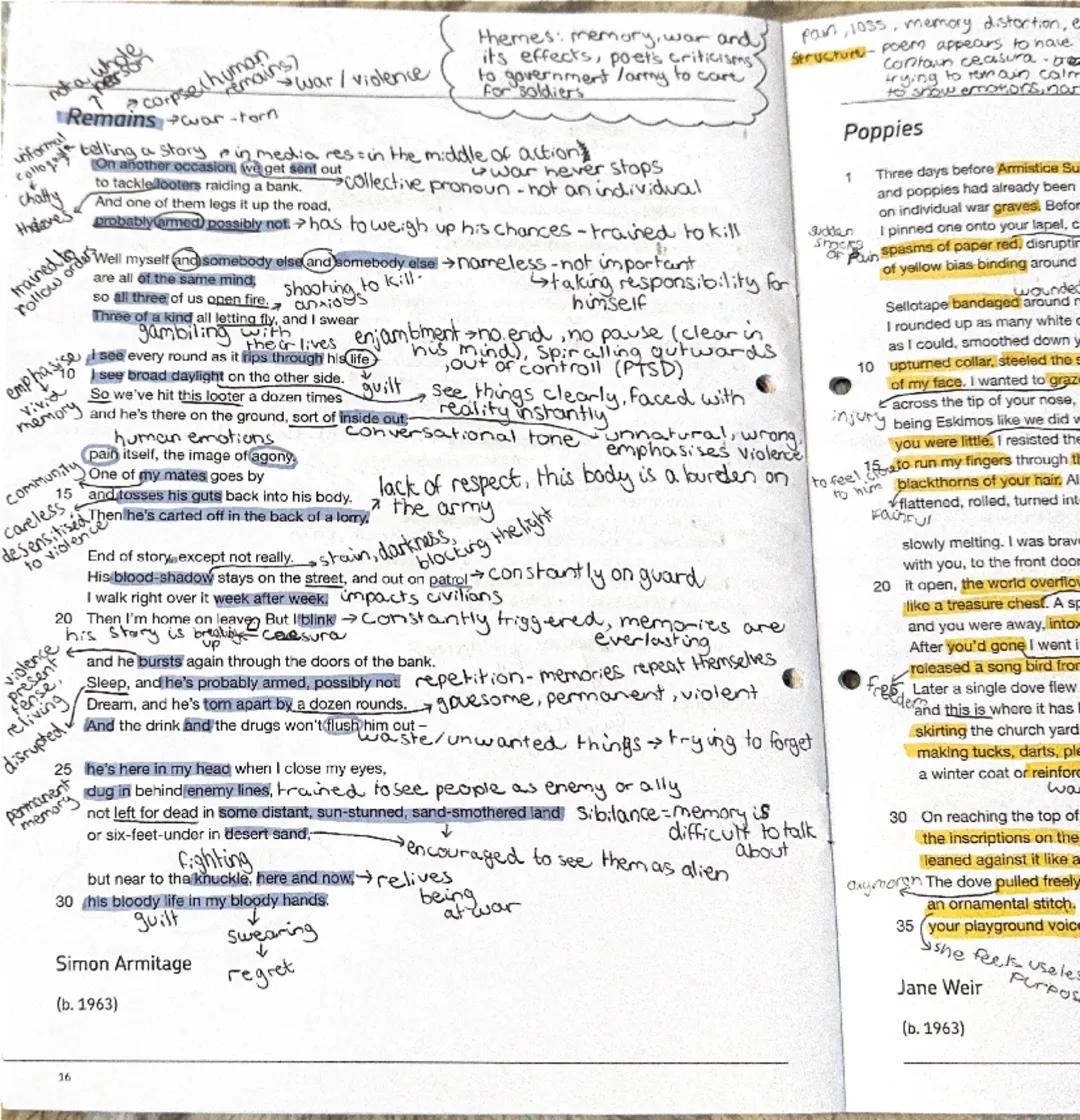 themes: memory, war and
its effects, poets criticisms
to government /army to care
for soldiers
not a whole
person
corpse (human
remains)
→ war / violence
Remains → war-torn
informal
telling a story
in media res = in the middle of action
↳ war never stops
chatty
On another occasion, we get sent out
to tackle looters raiding a bank.
→ collective pronoun - not an individual
thieves
And one of them legs it up the road,
probably armed, possibly not. → has to weigh up his chances - trained to kill
trained to
follow orders
Well myself and somebody else and somebody else → nameless - not important
are all of the same mind,
↳ taking responsibility for
himself
so all three of us open fire.
shooting to kill -
anxious
Three of a kind all letting fly, and I swear
gambiling with
their lives
enjambment → no end, no pause (clear in
his mind), spiralling outwards
, out of controll (PTSD)
emphasise
vivid
memory
I see every round as it rips through his life –
guilt
10 I see broad daylight on the other side.
So we've hit this looter a dozen times
see things clearly, faced with
reality instantly
and he's there on the ground, sort of inside out,
conversational tone
unnatural, wrong,
emphasises violence
human emotions
pain itself, the image of agony.
community
One of my mates goes by
15 and tosses his guts back into his body.
lack of respect, this body is a burden on
the army
careless
desensitised
to violence
Then he's carted off in the back of a lorry.
End of story, except not really.
stain, darkness,
blocking the light
His blood-shadow stays on the street, and out on patrol → constantly on guard
I walk right over it week after week. impacts civilians
20 Then I'm home on leave. But I blink → constantly triggered, memories are
everlasting
his story is breaking
up
caesura
violence
present
tense,
reliving
disrupted
and he bursts again through the doors of the bank.
Sleep, and he's probably armed, possibly not. repetition - memories repeat themselves
Dream, and he's torn apart by a dozen rounds. → gruesome, permanent, violent
And the drink and the drugs won't flush him out –
waste/unwanted things → trying to forget
25 he's here in my head when I close my eyes,
permanent
memory
dug in behind enemy lines, trained to see people as enemy or ally
not left for dead in some distant, sun-stunned, sand-smothered land
sibilance = memory is
difficult to talk
about
or six-feet-under in desert sand,
encouraged to see them as alien
fighting
but near to the knuckle, here and now, → relives
being
at war
30 his bloody life in my bloody hands.
guilt
swearing
regret
Simon Armitage
(b. 1963)
16
pain, loss, memory distortion,
structure - poem appears to have
contain
trying to remain calm
to show emotions,
Poppies
1 Three days before Armistice Su
and poppies had already been
on individual war graves. Befor
sudden
smears
of pain
I pinned one onto your lapel, c
spasms of paper red, disruptin
of yellow bias binding around
wounded
Sellotape bandaged around
I rounded up as many white
as I could, smoothed down y
10 upturned collar, steeled the s
of my face. I wanted to graz
injury
across the tip of your nose,
being Eskimos like we did w
you were little. I resisted the
to feel close
to him
15 to run my fingers through
blackthorns of your hair. Al
flattened, rolled, turned into
slowly melting. I was brave
with you, to the front door
20 it open, the world overflow
like a treasure chest. A sp
and you were away, intox
After you'd gone I went i
released a song bird from
freedom
Later a single dove flew
and this is where it has
skirting the church yard
making tucks, darts, ple
a winter coat or reinforc
30 On reaching the top of
the inscriptions on the
leaned against it like a
oxymoron
The dove pulled freely
an ornamental stitch.
35 your playground voice
she feels useless
purpos
Jane Weir
(b. 1963)